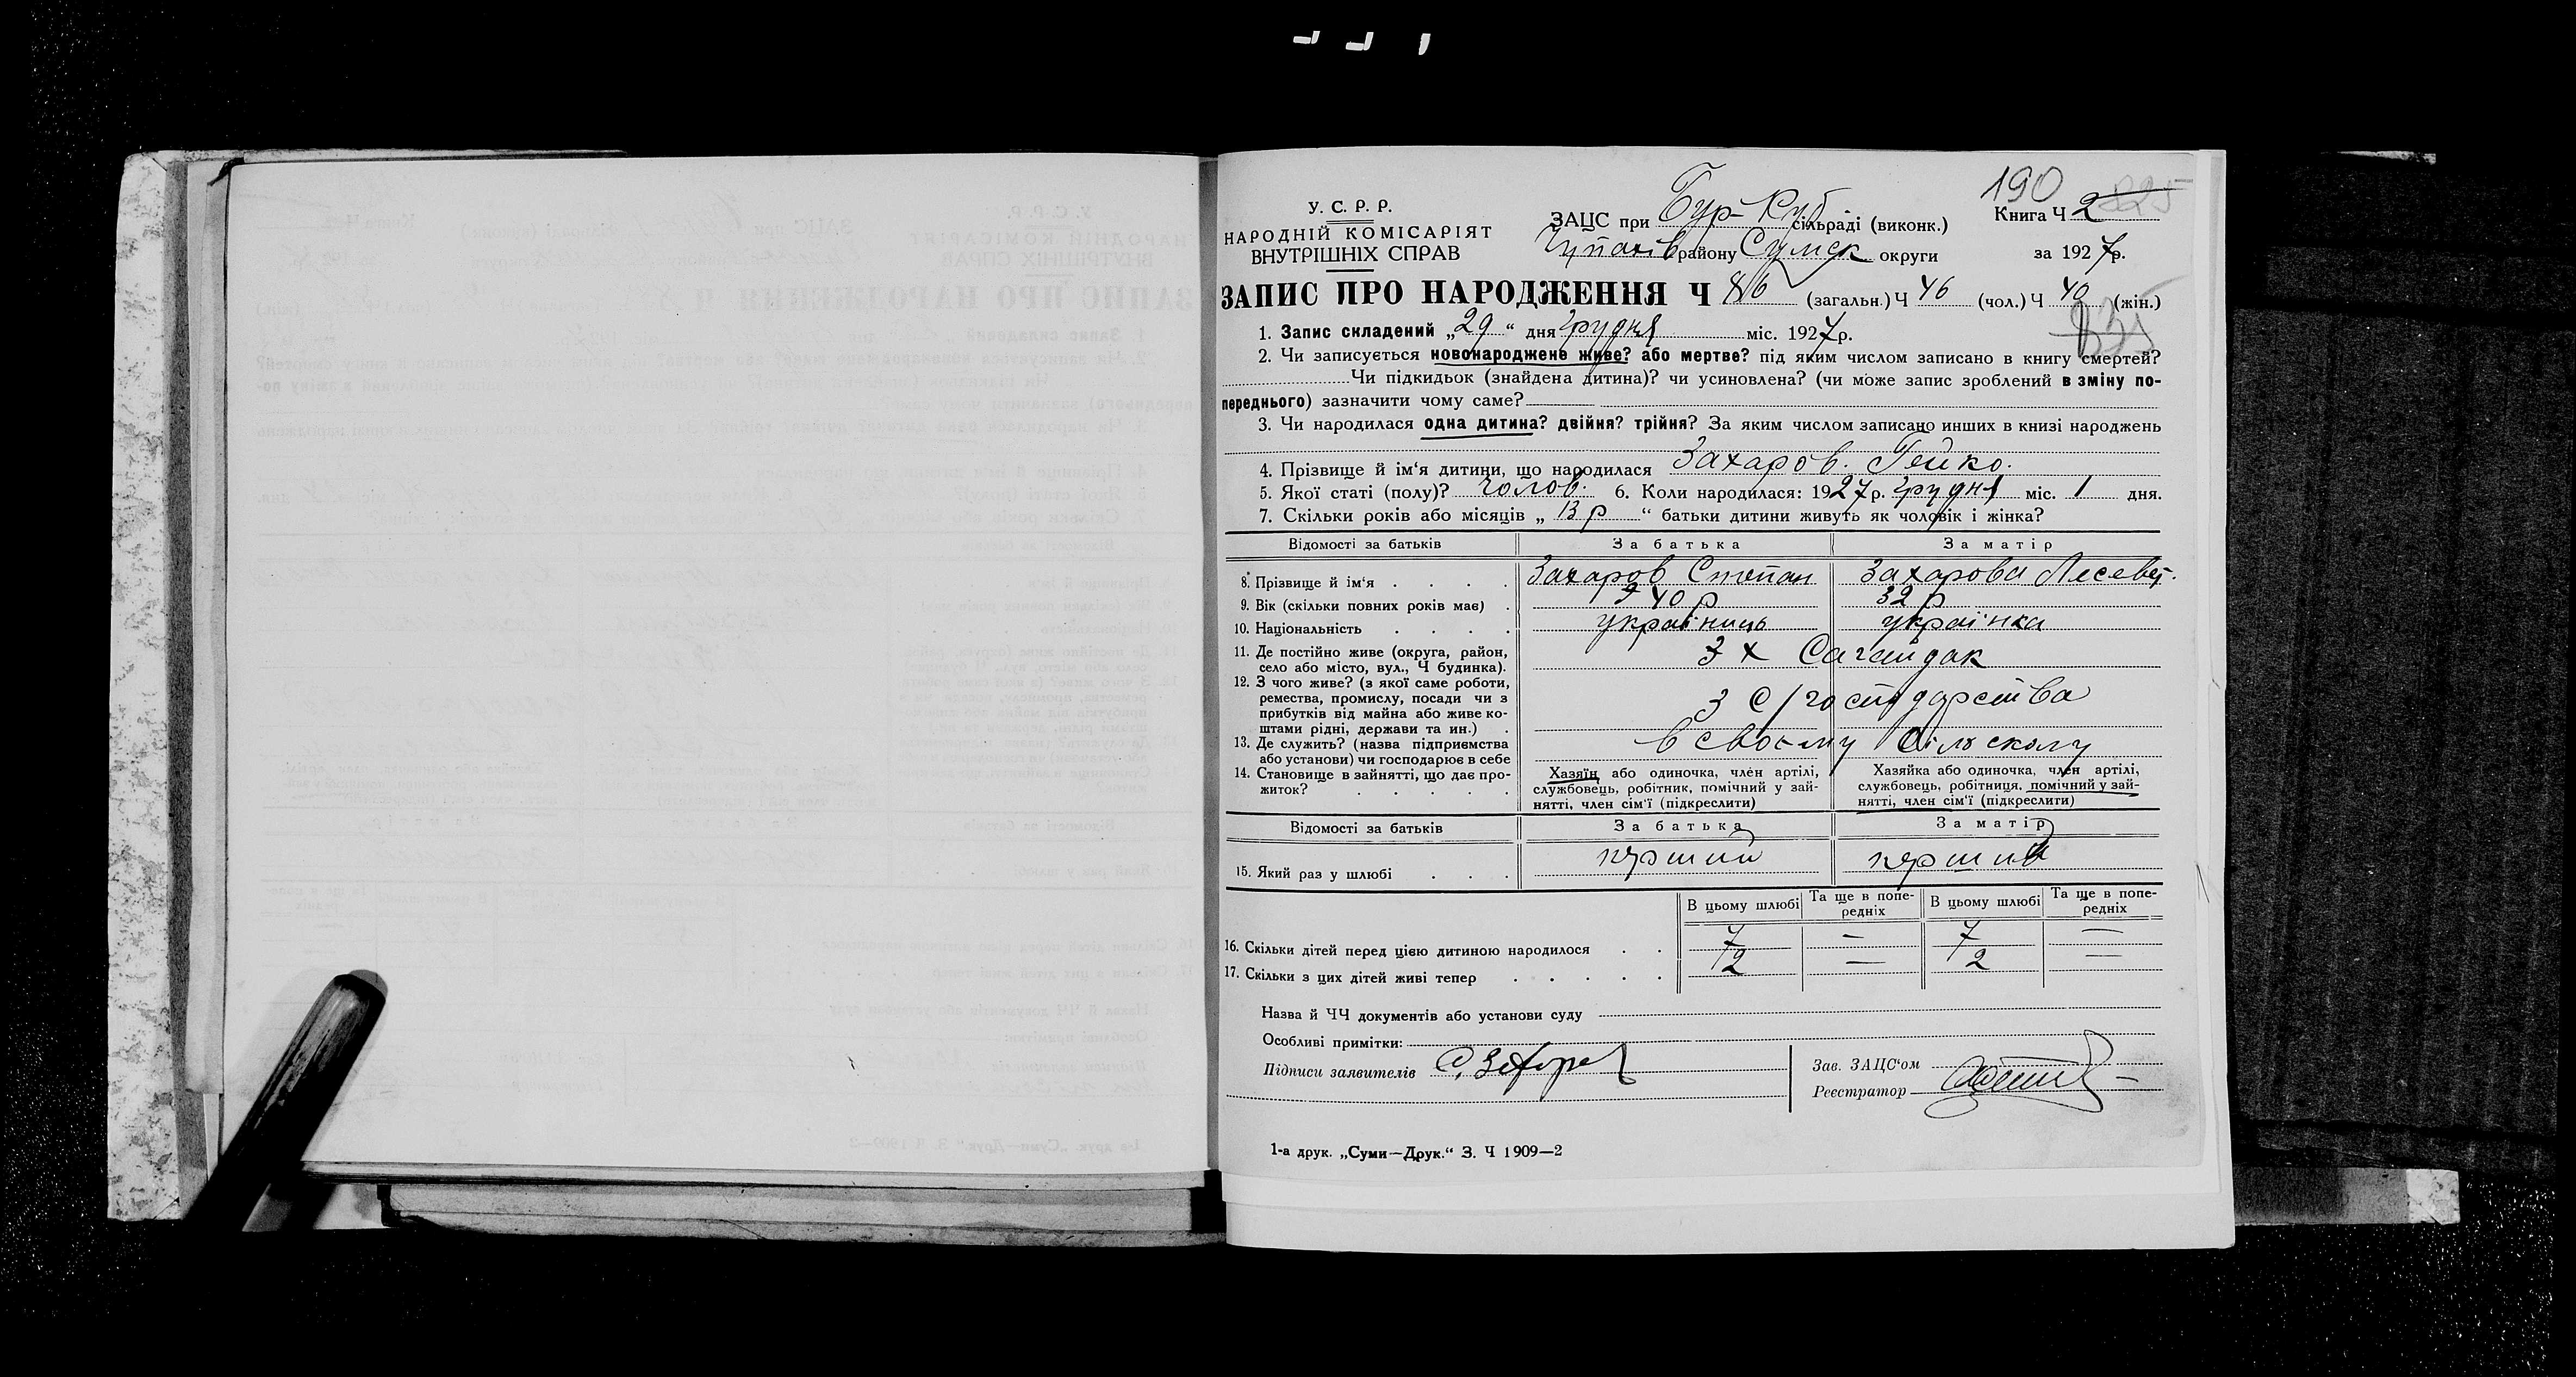 190
У. С. Р. Р.
НАРОДНІЙ КОМІСАРІЯТ
ВНУТРІШНІХ СПРАВ
ЗАЦС при Бур-Куб. сільраді (виконк.)
району Сумск округи
Книга Ч 2
за 1927р.
ЗАПИС ПРО НАРОДЖЕННЯ Ч 86 (загальн.) Ч 46 (чол.) Ч 40 (жін.)
1. Запис складений „29“ дня грудня міс. 1927р.
2. Чи записується новонароджене живе? або мертве? під яким числом записано в книгу смертей?
Чи підкидьок (знайдена дитина)? чи усиновлена? (чи може запис зроблений в зміну по-
переднього) зазначити чому саме?
3. Чи народилася одна дитина? двійня? трійня? За яким числом записано инших в книзі народжень
4. Прізвище й ім‘я дитини, що народилася Захаров.
5. Якої статі (полу)? чолов. 6. Коли народилася: 1927р. грудня міс. 1 дня.
7. Скільки років або місяців „13 р“ батьки дитини живуть як чоловік і жінка?
Відомості за батьків За батька За матір
8. Прізвище й ім‘я Захаров Степан Захарова Лесевет.
9. Вік (скільки повних років має) 40 р 32 р
10. Національність українць українка
11. Де постійно живе (округа, район,
село або місто, вул., Ч будинка). З х Сагайдак
12. З чого живе? (з якої саме роботи,
ремества, промислу, посади чи з
прибутків від майна або живе ко-
штами рідні, держави та ин.) З С/господарства
13. Де служить? (назва підприємства
або установи) чи господарює в себе в своєму сільскому
14. Становище в зайнятті, що дає про-
житок?
Хазяїн або одиночка, член артілі,
службовець, робітник, помічний у зай-
нятті, член сім‘ї (підкреслити)
Хазяйка або одиночка, член артілі,
службовець, робітниця, помічний у зай-
нятті, член сім‘ї (підкреслити)
Відомості за батьків За батька За матір
15. Який раз у шлюбі перший перший
В цьому шлюбі Та ще в попе-
редніх В цьому шлюбі Та ще в попе-
редніх
16. Скільки дітей перед цією дитиною народилося 7 — 7 —
17. Скільки з цих дітей живі тепер 2 — 2 —
Назва й ЧЧ документів або установи суду
Особливі примітки:
Підписи заявителів
Зав. ЗАЦС‘ом
Реєстратор
1-а друк. „Суми—Друк.“ З. Ч 1909—2